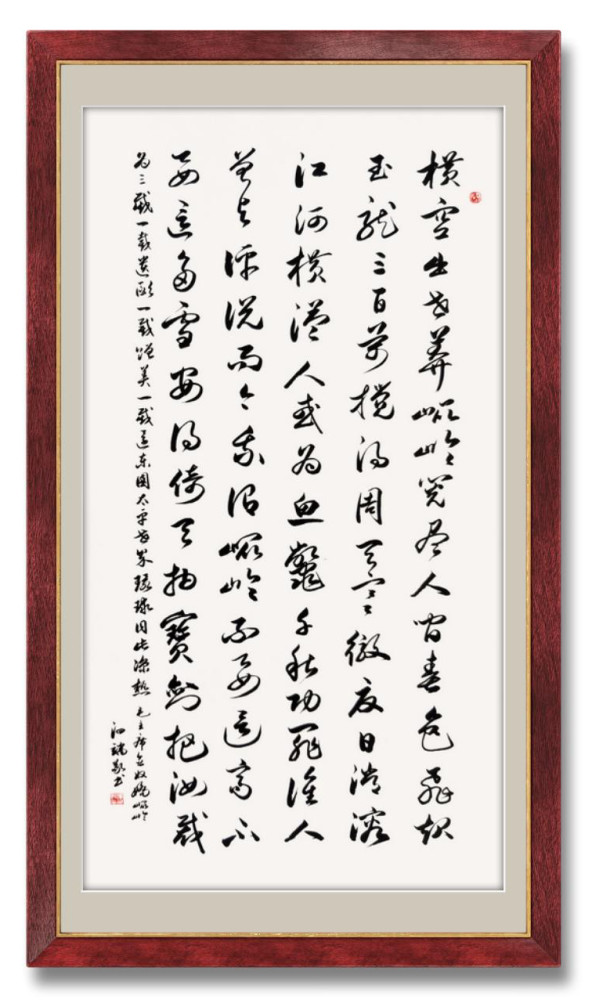 横空出世莽崐崘阅尽人间春色飛起
玉龍三百萬搅得周天寒徹夏日消溶
江河横溢人或为鱼鳖千秋功罪谁人
曾与评说而今我谓崐崘不要这高不
要这多雪安得倚天抽寶剑把汝裁
为三截一截遗欧一截赠美一截还东国太平世界环球同此凉热 毛主席念奴娇崐崘
书